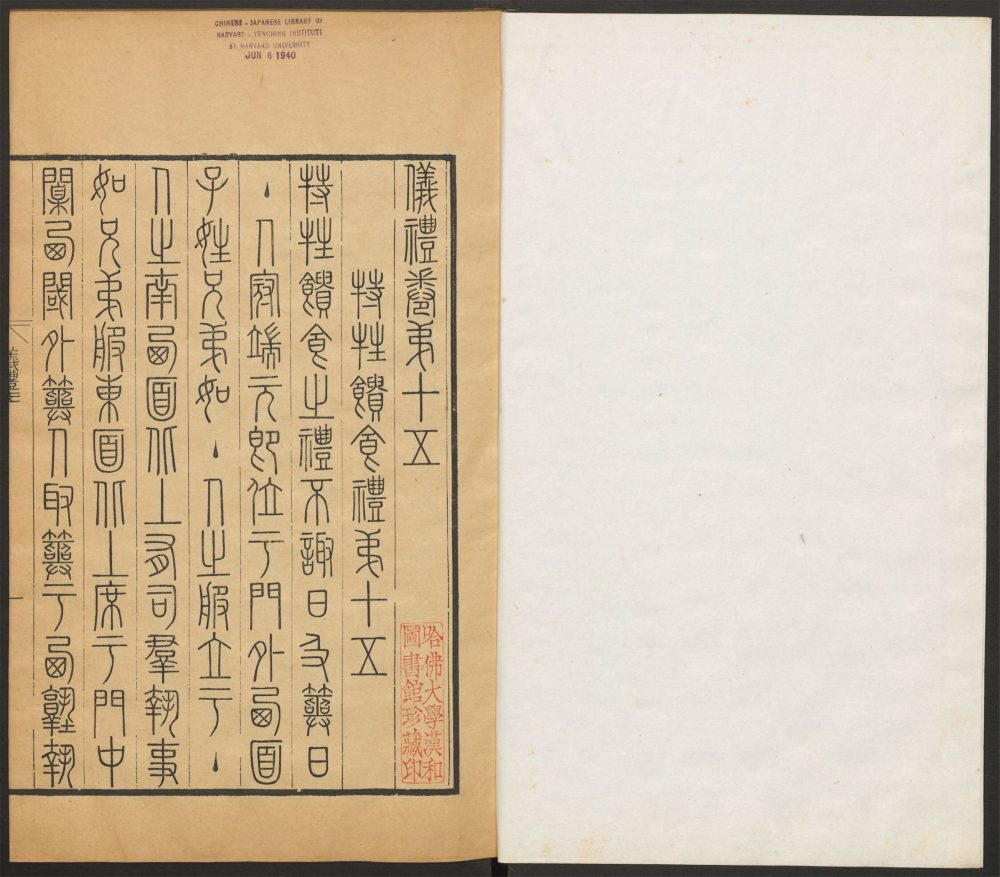 CHINESE - JAPANESE LIBRARY OF
HARVARD - YENCHING INSTITUTE
AT HARVARD UNIVERSITY
JUN 6 1940
儀禮卷弟十五
哈佛大學漢和
圖書館珍藏印
特牲饋食禮弟十五
特牲饋食之禮不諏日及筮日
丶人冠端元即位于門外西面
子姓兄弟如丶人之服立于丶
人之南西面北上有司羣執事
如兄弟服東面北上席于門中
闑西閾外筮人取筮于西塾執